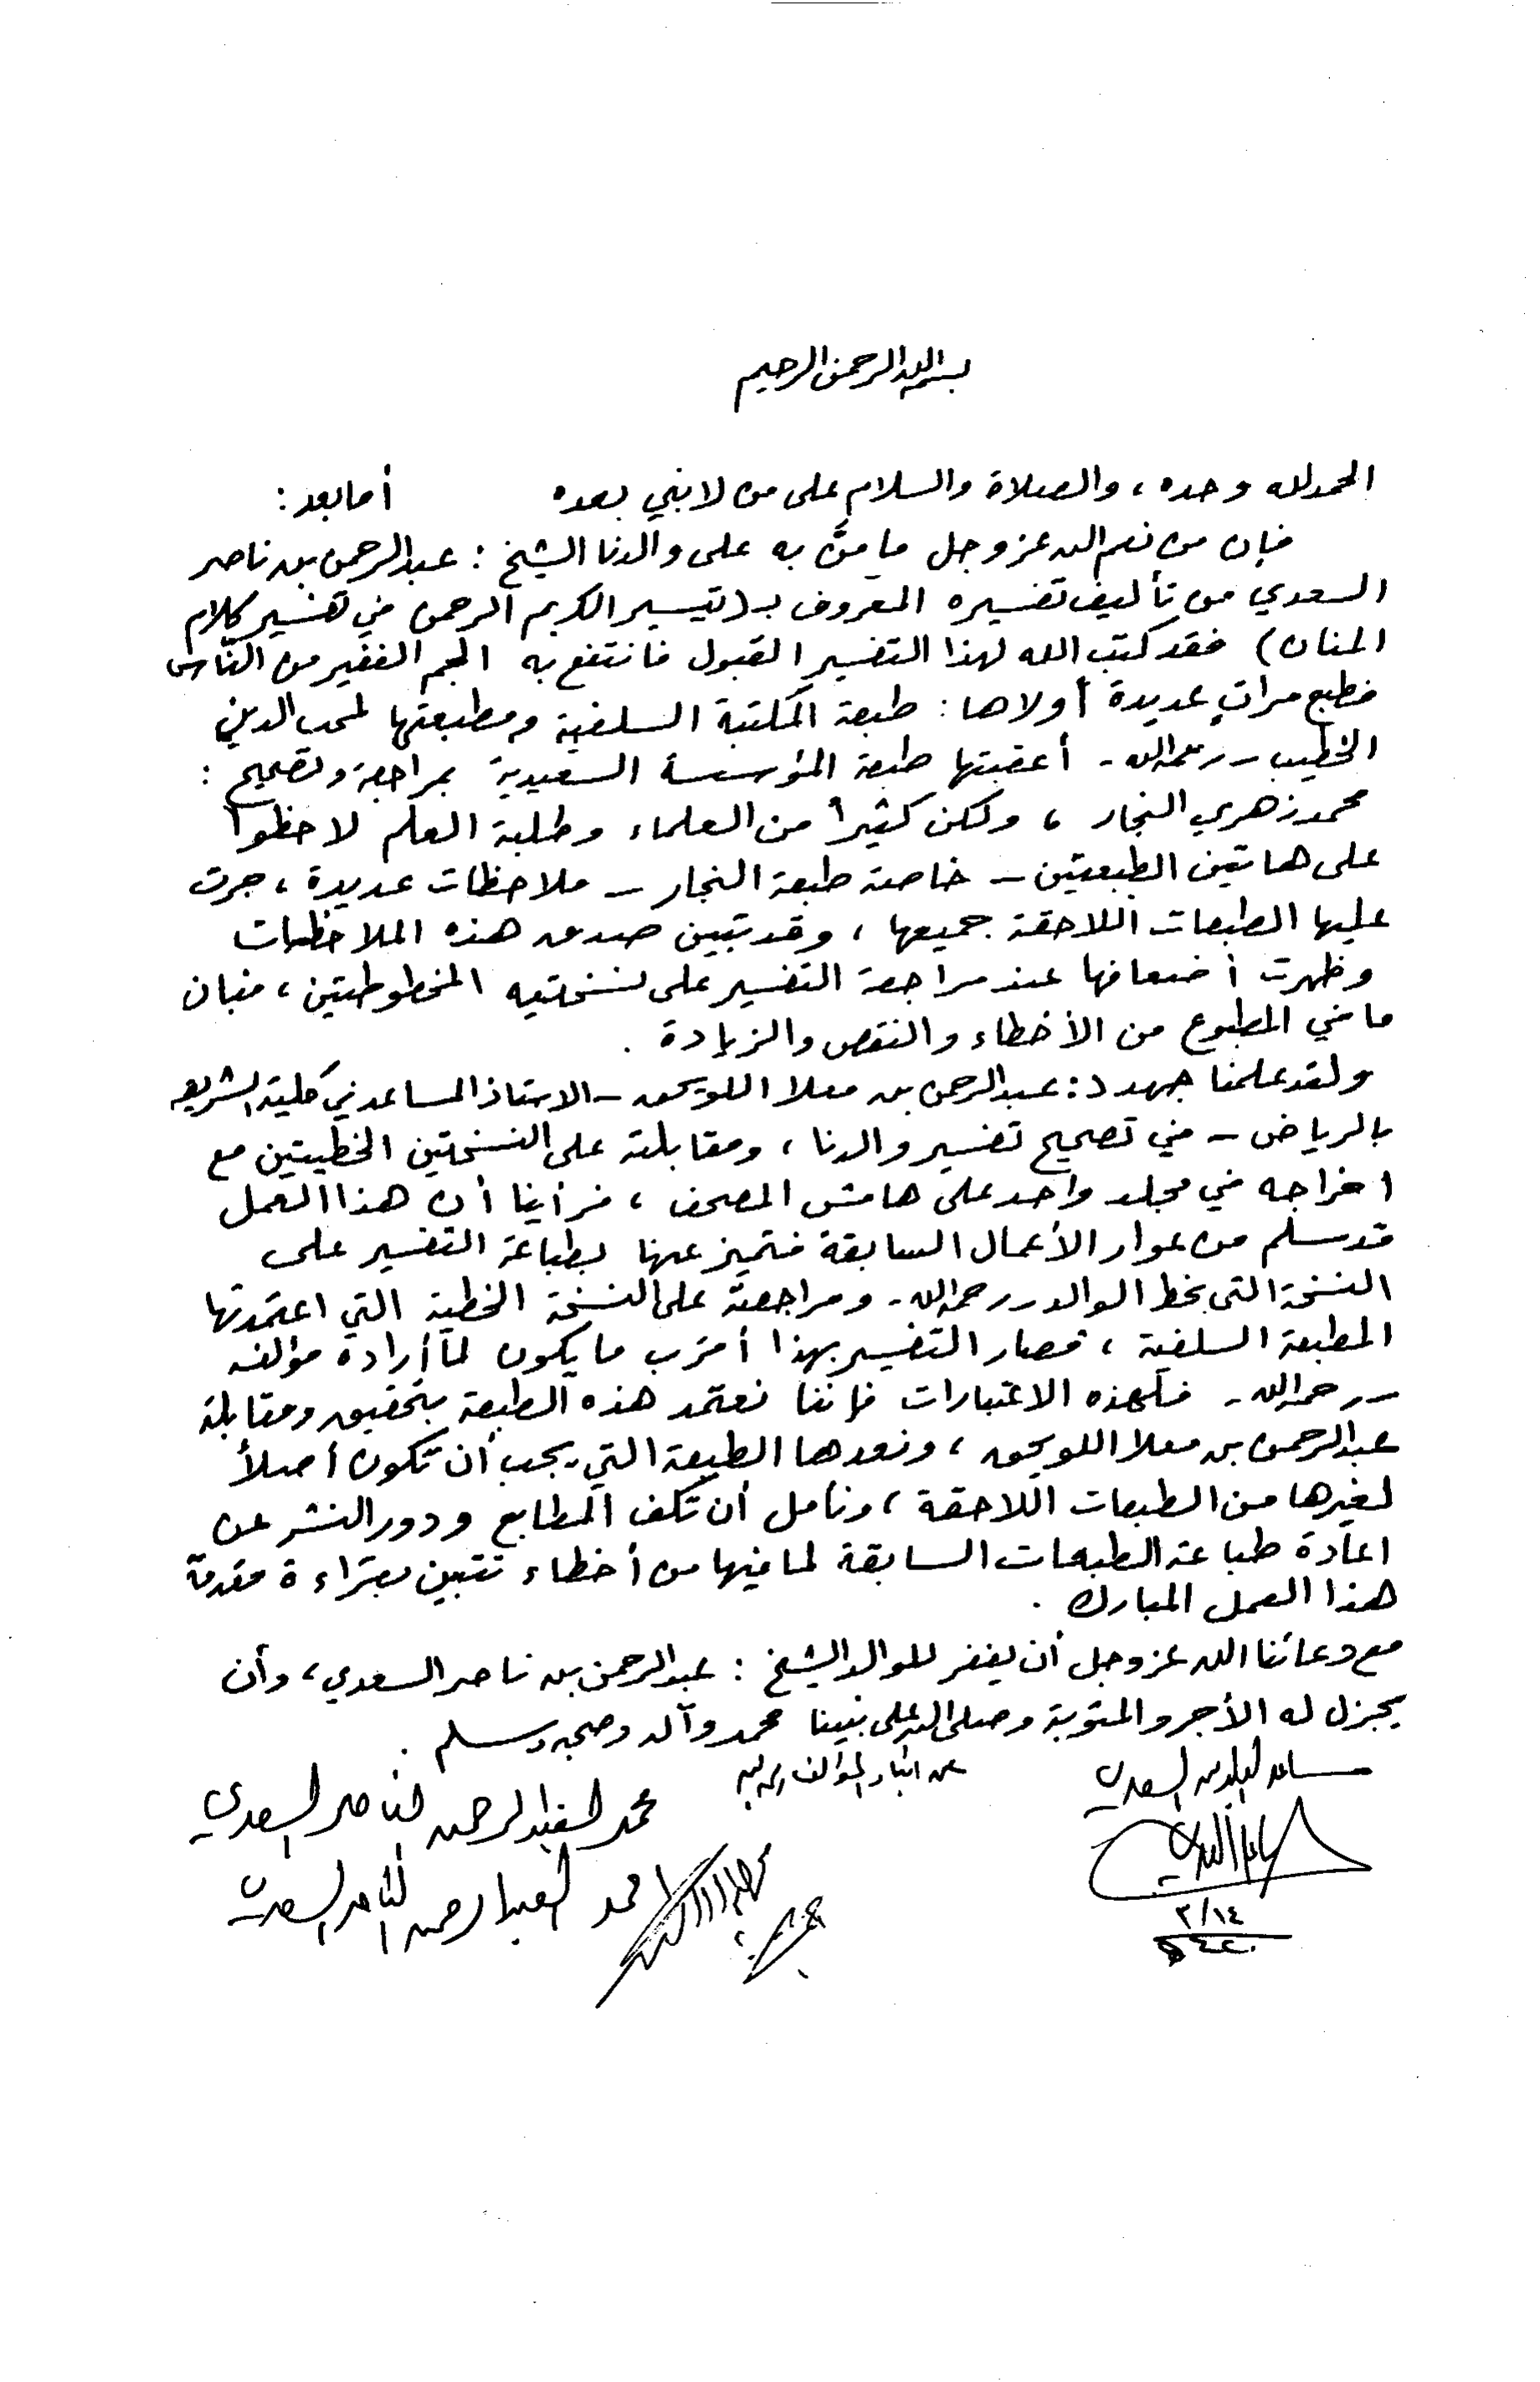 بسم الله الرحمن الرحيم
الحمد لله وحده ، والصلاة والسلام على من لا نبي بعده أما بعد :
فإن من نعم الله عز وجل ما منَّ به على والدنا الشيخ : عبد الرحمن بن ناصر
السعدي من تأليف تفسيره المعروف بـ (تيسير الكريم الرحمن في تفسير كلام
المنان) فقد كتب الله لهذا التفسير القبول فانتفع به الجم الغفير من الناس
فطبع مراتٍ عديدة أولاها : طبعة المكتبة السلفية ومطبعتها لمحب الدين
الخطيب - رحمه الله - أعقبتها طبعة المؤسسة السعيدية بمراجعة وتصحيح :
محمد زهري النجار ، ولكن كثيراً من العلماء وطلبة العلم لاحظوا
على هاتين الطبعتين - خاصة طبعة النجار - ملاحظات عديدة ، جرت
عليها الطبعات اللاحقة جميعها ، وقد تبين صدق هذه الملاحظات
وظهرت أضعافها عند مراجعة التفسير على نسختيه المخطوطتين ، فبان
ما في المطبوع من الأخطاء والنقص والزيادة .
ولقد علمنا جهد د : عبد الرحمن بن معلا اللويحق - الاستاذ المساعد في كلية الشريعة
بالرياض - في تصحيح تفسير والدنا ، ومقابلته على النسختين الخطيتين مع
اخراجه في مجلد واحد على هامش المصحف ، فرأينا أن هذا العمل
قد سلم من عوار الأعمال السابقة فتميز عنها بطباعة التفسير على
النسخة التي بخط الوالد - رحمه الله - ومراجعته على النسخة الخطية التي اعتمدتها
المطبعة السلفية ، فصار التفسير بهذا أقرب ما يكون لما أراده مؤلفه
- رحمه الله - فلهذه الاعتبارات فإننا نعتمد هذه الطبعة بتحقيق ومقابلة
عبد الرحمن بن معلا اللويحق ، ونعدها الطبعة التي يجب أن تكون أصلاً
لغيرها من الطبعات اللاحقة ، ونأمل أن تكف المطابع ودور النشر عن
اعادة طباعة الطبعات السابقة لما فيها من أخطاء تتبين بقراءة مقدمة
هذا العمل المبارك .
مع دعائنا الله عز وجل أن يغفر للوالد الشيخ : عبد الرحمن بن ناصر السعدي ، وأن
يجزل له الأجر والمثوبة وصلى الله على نبينا محمد وآله وصحبه وسلم .
عن ابناء المؤلف رحمه الله
مساعد العبد السعدي
محمد العبد الرحمن الناصر السعدي
احمد العبد الرحمن الناصر السعدي
٣/١٤
١٤٢٠هـ